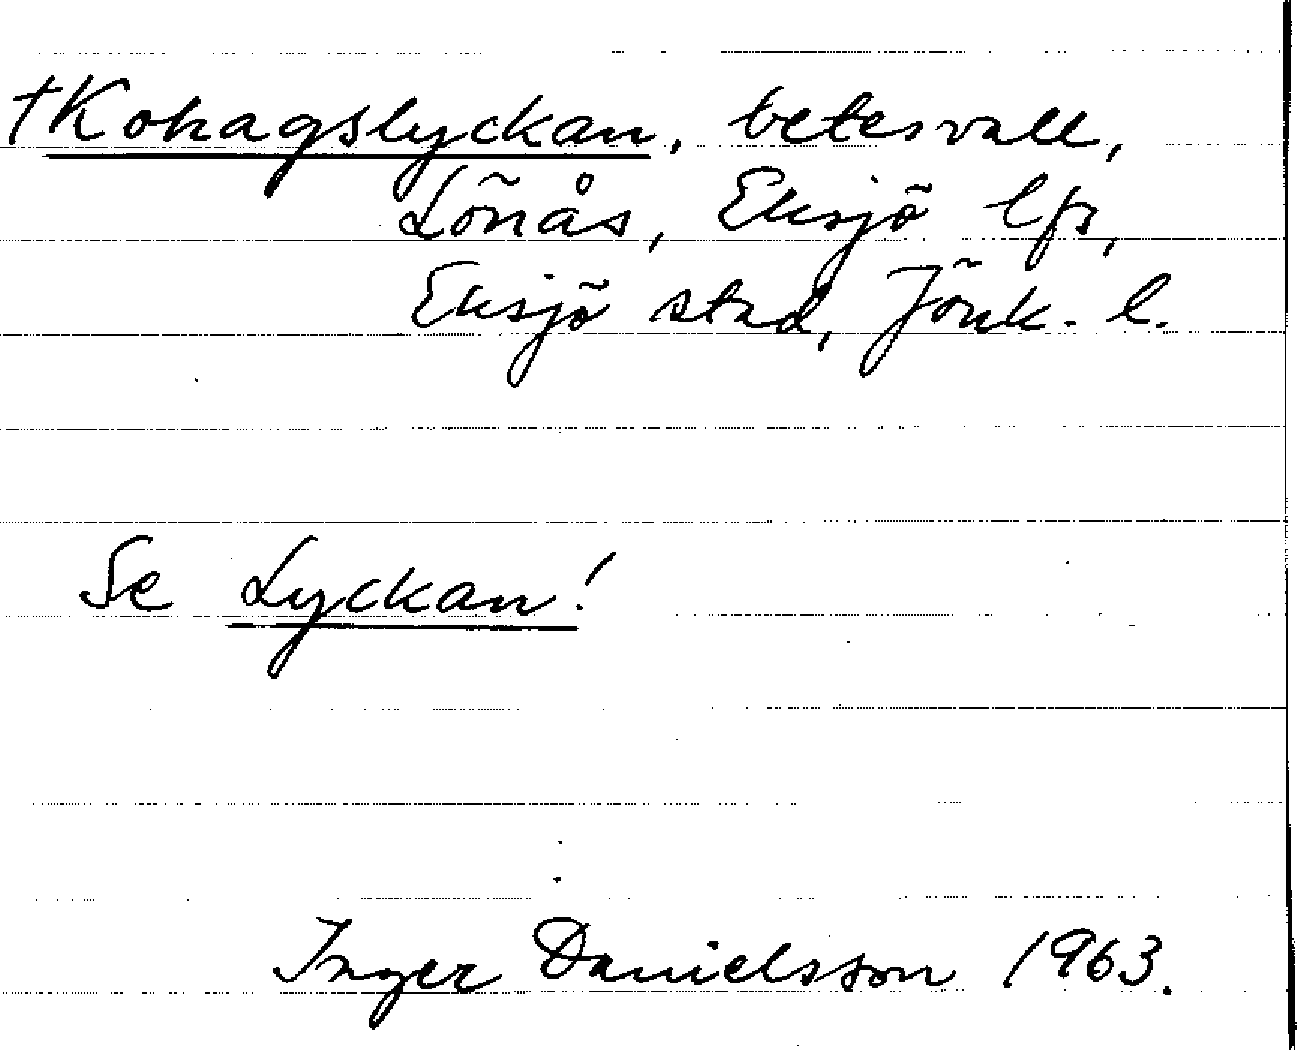 †Kohagslyckan, betesvall,
Lönås, Eksjö lfs,
Eksjö stad, Jönk. l.
Se Lyckan!
Inger Danielsson 1963.